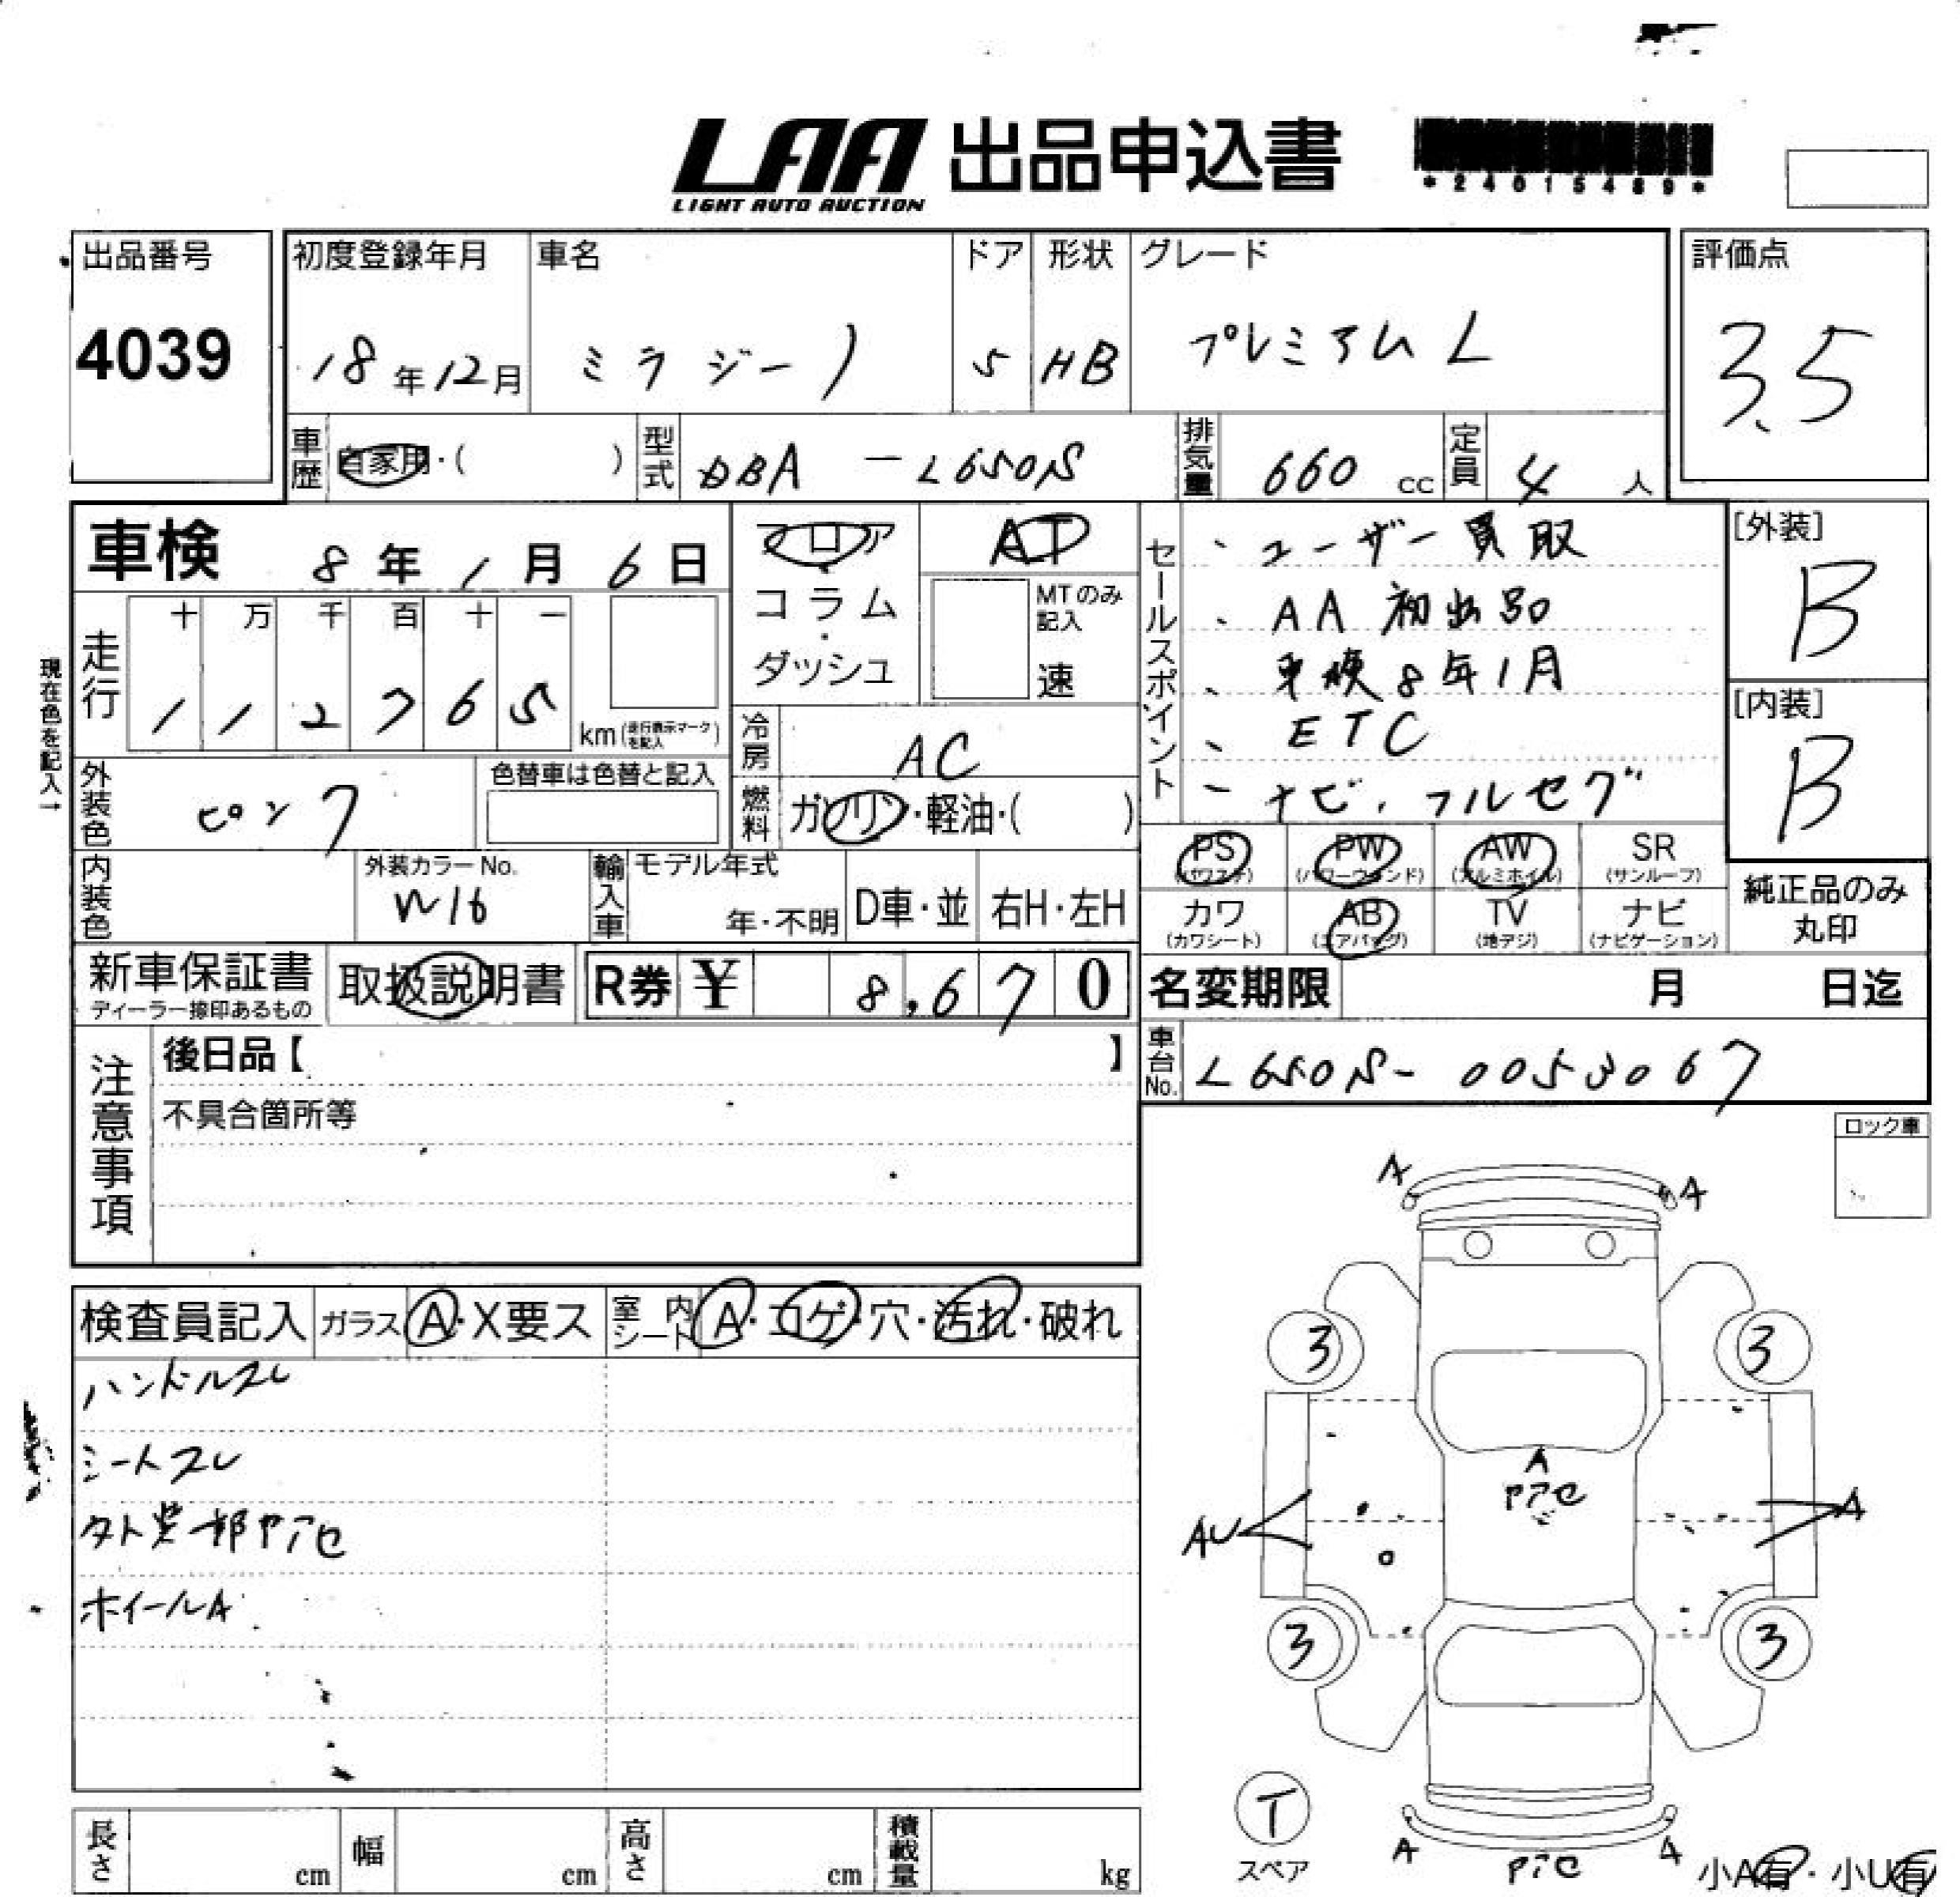 LAA 出品申込書
LIGHT AUTO AUCTION
*24015489*
出品番号
4039
初度登録年月
18年12月
車名
ミラジーノ
ドア
5
形状
HB
グレード
プレミアムL
評価点
3.5
車歴
自家用・( )
型式
DBA-L650S
排気量
660 cc
定員
4 人
車検 8年1月6日
フロア
・
コラム
・
ダッシュ
AT
MTのみ
記入
速
走行
十 万 千 百 十 一
1 1 2 7 6 5
km(走行表示マークを記入)
現在色を記入→
冷房
AC
燃料
ガソリン・軽油・( )
外装色
ピンク
色替車は色替と記入
内装色
外装カラーNo.
W16
輸入車
モデル年式
年・不明
D車・並
右H・左H
セールスポイント
、ユーザー買取
、AA初出品
、車検8年1月
、ETC
、ナビ、フルセグ
[外装]
B
[内装]
B
PS
(パワステ)
PW
(パワーウィンド)
AW
(アルミホイル)
SR
(サンルーフ)
カワ
(カワシート)
AB
(エアバッグ)
TV
(地デジ)
ナビ
(ナビゲーション)
純正品のみ
丸印
新車保証書
ディーラー捺印あるもの
取扱説明書
R券 ¥ 8,670
名変期限 月 日迄
車台No.
L650S-0053067
注意事項
後日品【 】
不具合箇所等
ロック車
検査員記入
ガラス A・X要ス
室内シート A・コゲ・穴・汚れ・破れ
ハンドルスレ
シートスレ
外装部アセ
ホイールA
A
A
3
3
A
アセ
AU
A
3
3
T
スペア
A
アセ
A
小A有・小U有
長さ cm
幅 cm
高さ cm
積載量 kg